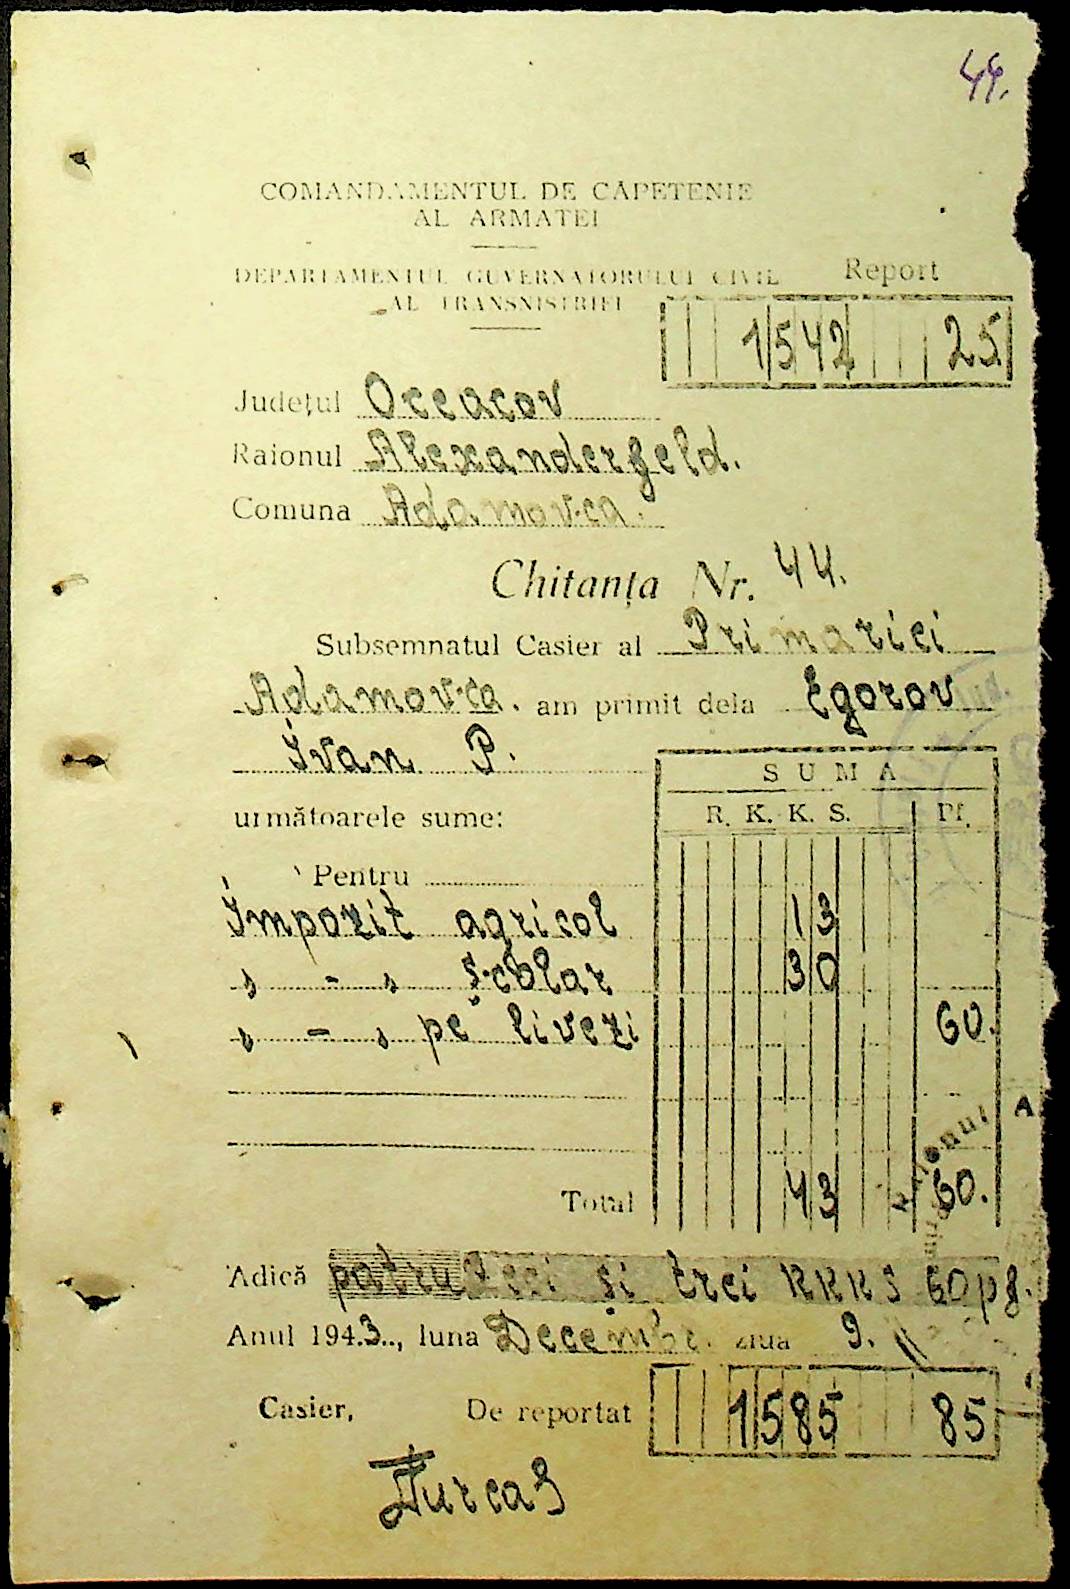 44.
COMANDAMENTUL DE CĂPETENIE
AL ARMATEI
DEPARTAMENTUL GUVERNATORULUI CIVIL
AL TRANSNISTRIEI
Report
1542 25
Județul Oceacov
Raionul Alexanderfeld.
Comuna Adamovca.
Chitanța Nr. 44.
Subsemnatul Casier al Primariei
Adamovca. am primit dela Egorov
Ivan P.
SUMA
următoarele sume:
R. K. K. S. Pf.
Pentru
Impozit agricol 13
" - " școlar 30
" - " pe livezi 60.
Total 43 60.
Adică patruzeci și trei RKKS 60 pf.
Anul 1943.., luna Decembr. ziua 9.
Casier, De reportat 1585 85
Raionul